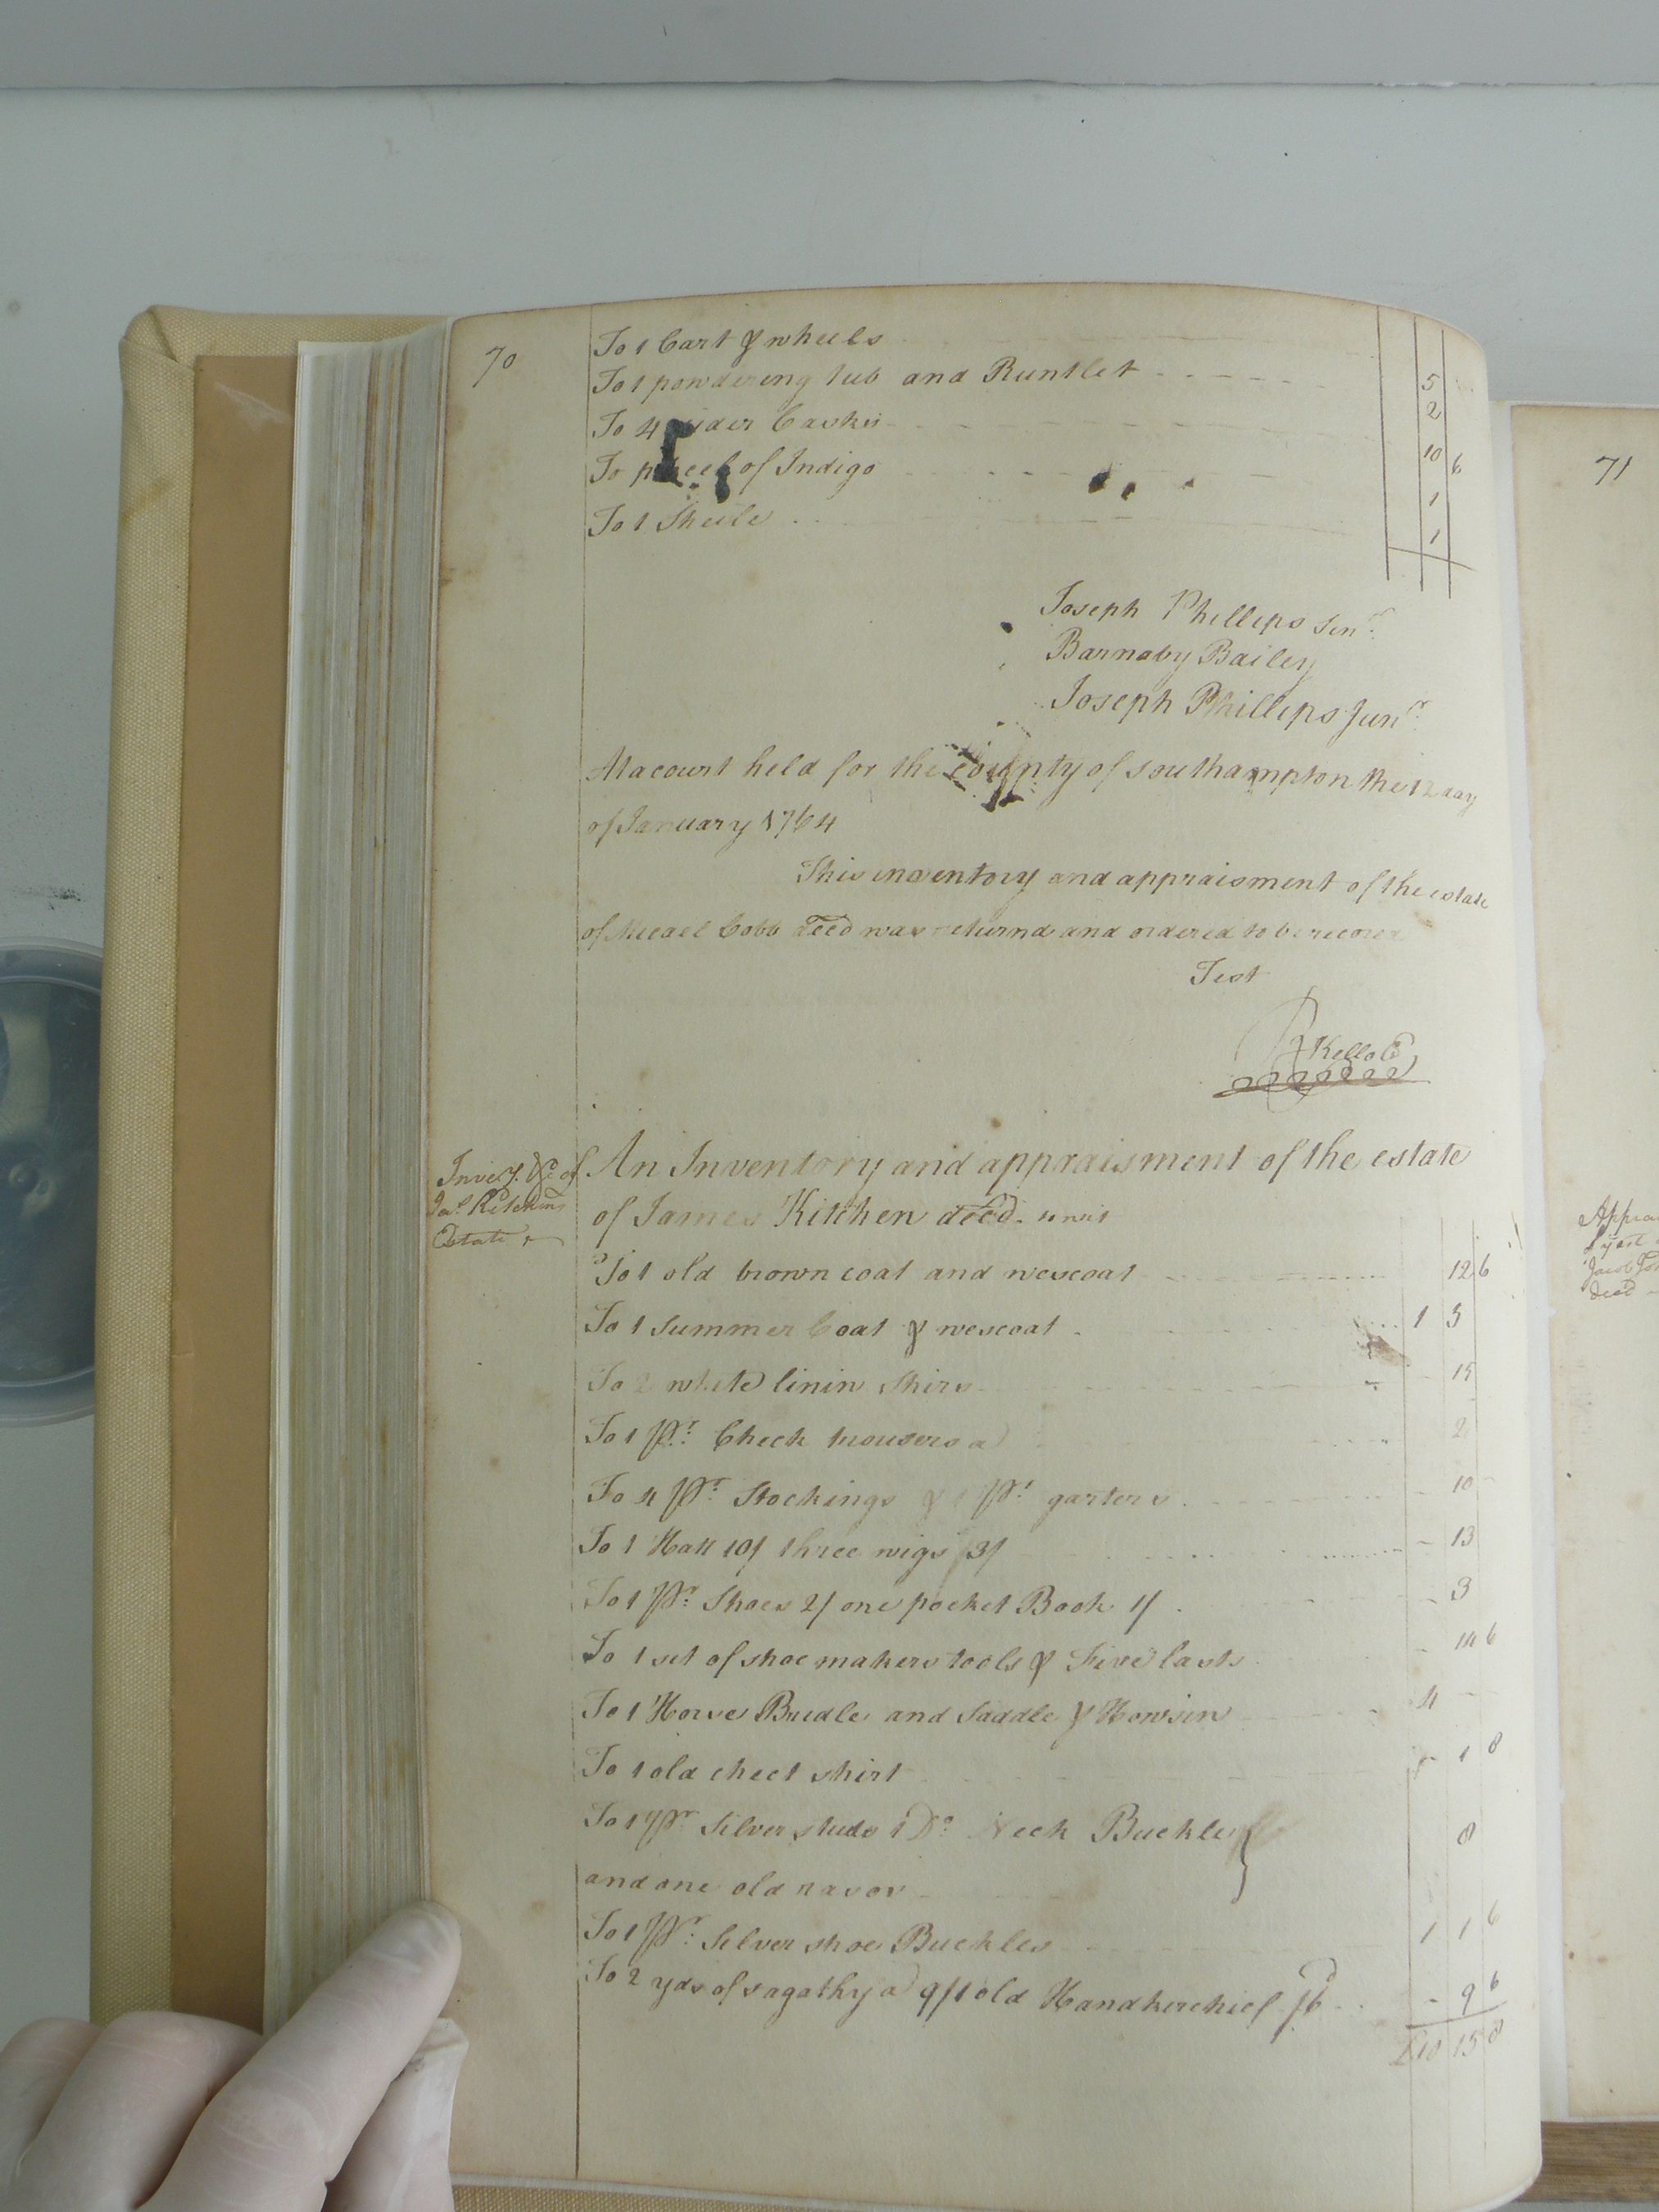 70
To 1 Cart & wheels
To 1 powdering tub and Runtlet 5
To 4 Casks 2
To of Indigo 10 6
To 1 1
1
Joseph Phillips Senr.
Barnaby Bailey
Joseph Phillips Junr.
At a court held for the county of Southampton the 12 day
of January 1764
This inventory and appraisment of the estate
of Micael Cobb Decd was returnd and ordered to be
Test
R Kello
Inve &c of
Jas. Kitchens
Estate
An Inventory and appraisment of the estate
of James Kitchen decd. towit
To 1 old brown coat and wescoat 12 6
To 1 Summer Coat & wescoat 1 5
To 2 white linin Shirs 15
To 1 Pr. Check trousers a 2
To 4 Pr. Stockings & Pr. garters 10
To 1 Hatt 10/ three wigs 3/ 13
To 1 Pr. Shoes 2/ one pocket Book 1/ 3
To 1 set of shoe makers tools & Five lasts 14 6
To 1 Horse Bridle and Saddle & Howsin 4
To 1 old check shirt 1 8
To 1 Pr Silver studs 1 Do Neck Buckle } 8
and one old rasor
To 1 Pr. Silver shoe Buckles 1 1 6
To 2 yds of sagathy a 9/ 1 old Handkerchief /6 9 6
£10 15 8
71
Appra